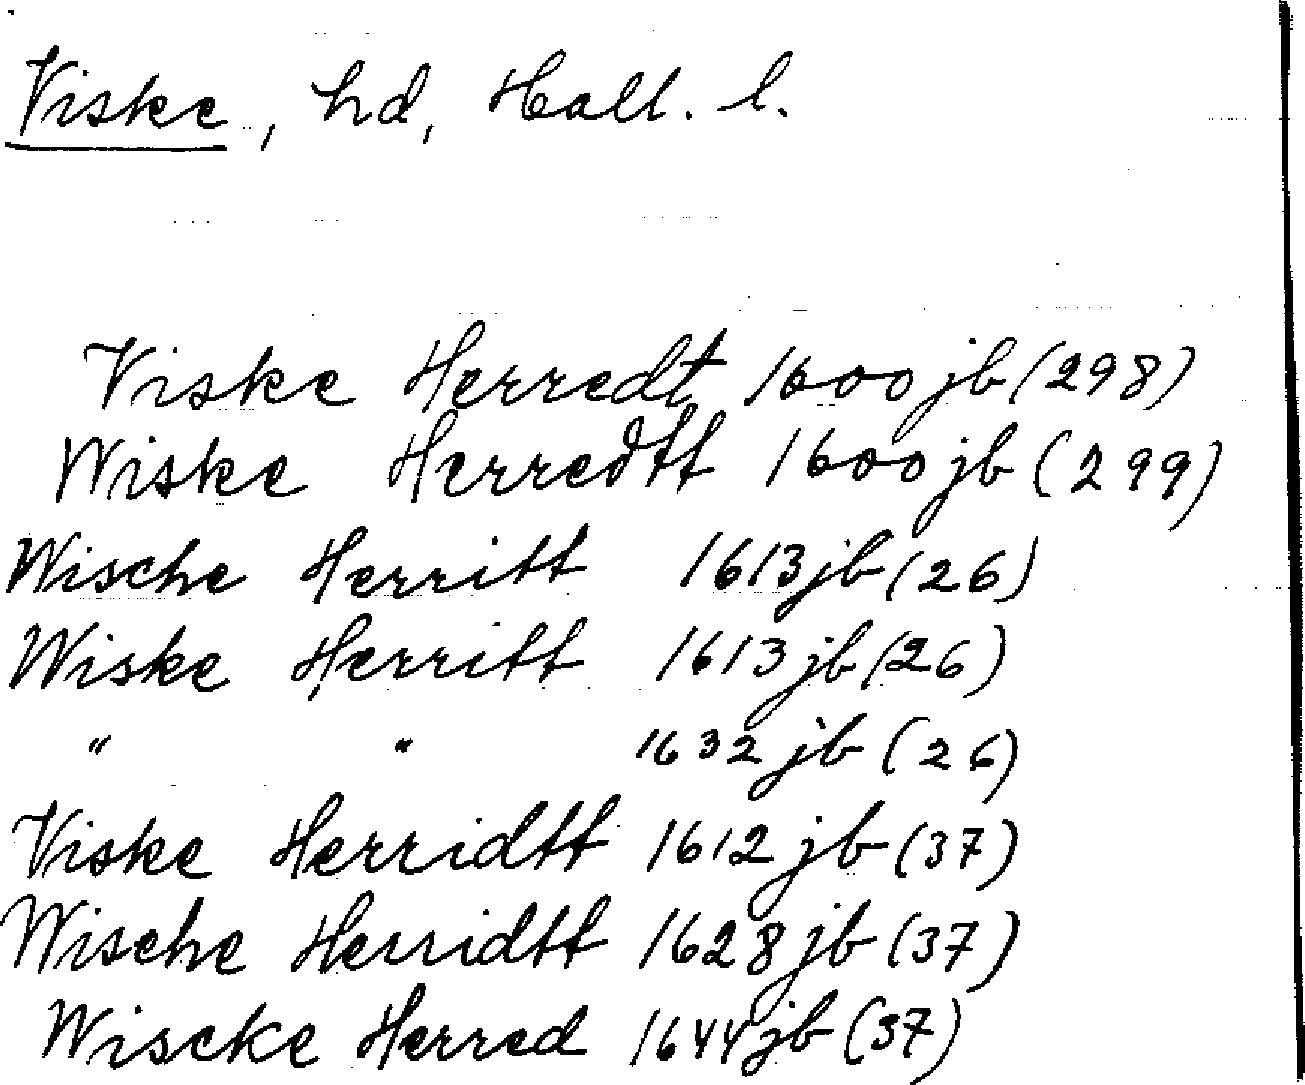 Viske, hd, Hall. l.
Viske Herredt 1600 jb (298)
Wiske Herredtt 1600 jb (299)
Wische Herritt 1613 jb (26)
Wiske Herritt 1613 jb (26)
" " 1632 jb (26)
Viske Herridtt 1612 jb (37)
Wische Herridtt 1628 jb (37)
Wiscke Herred 1644 jb (37)